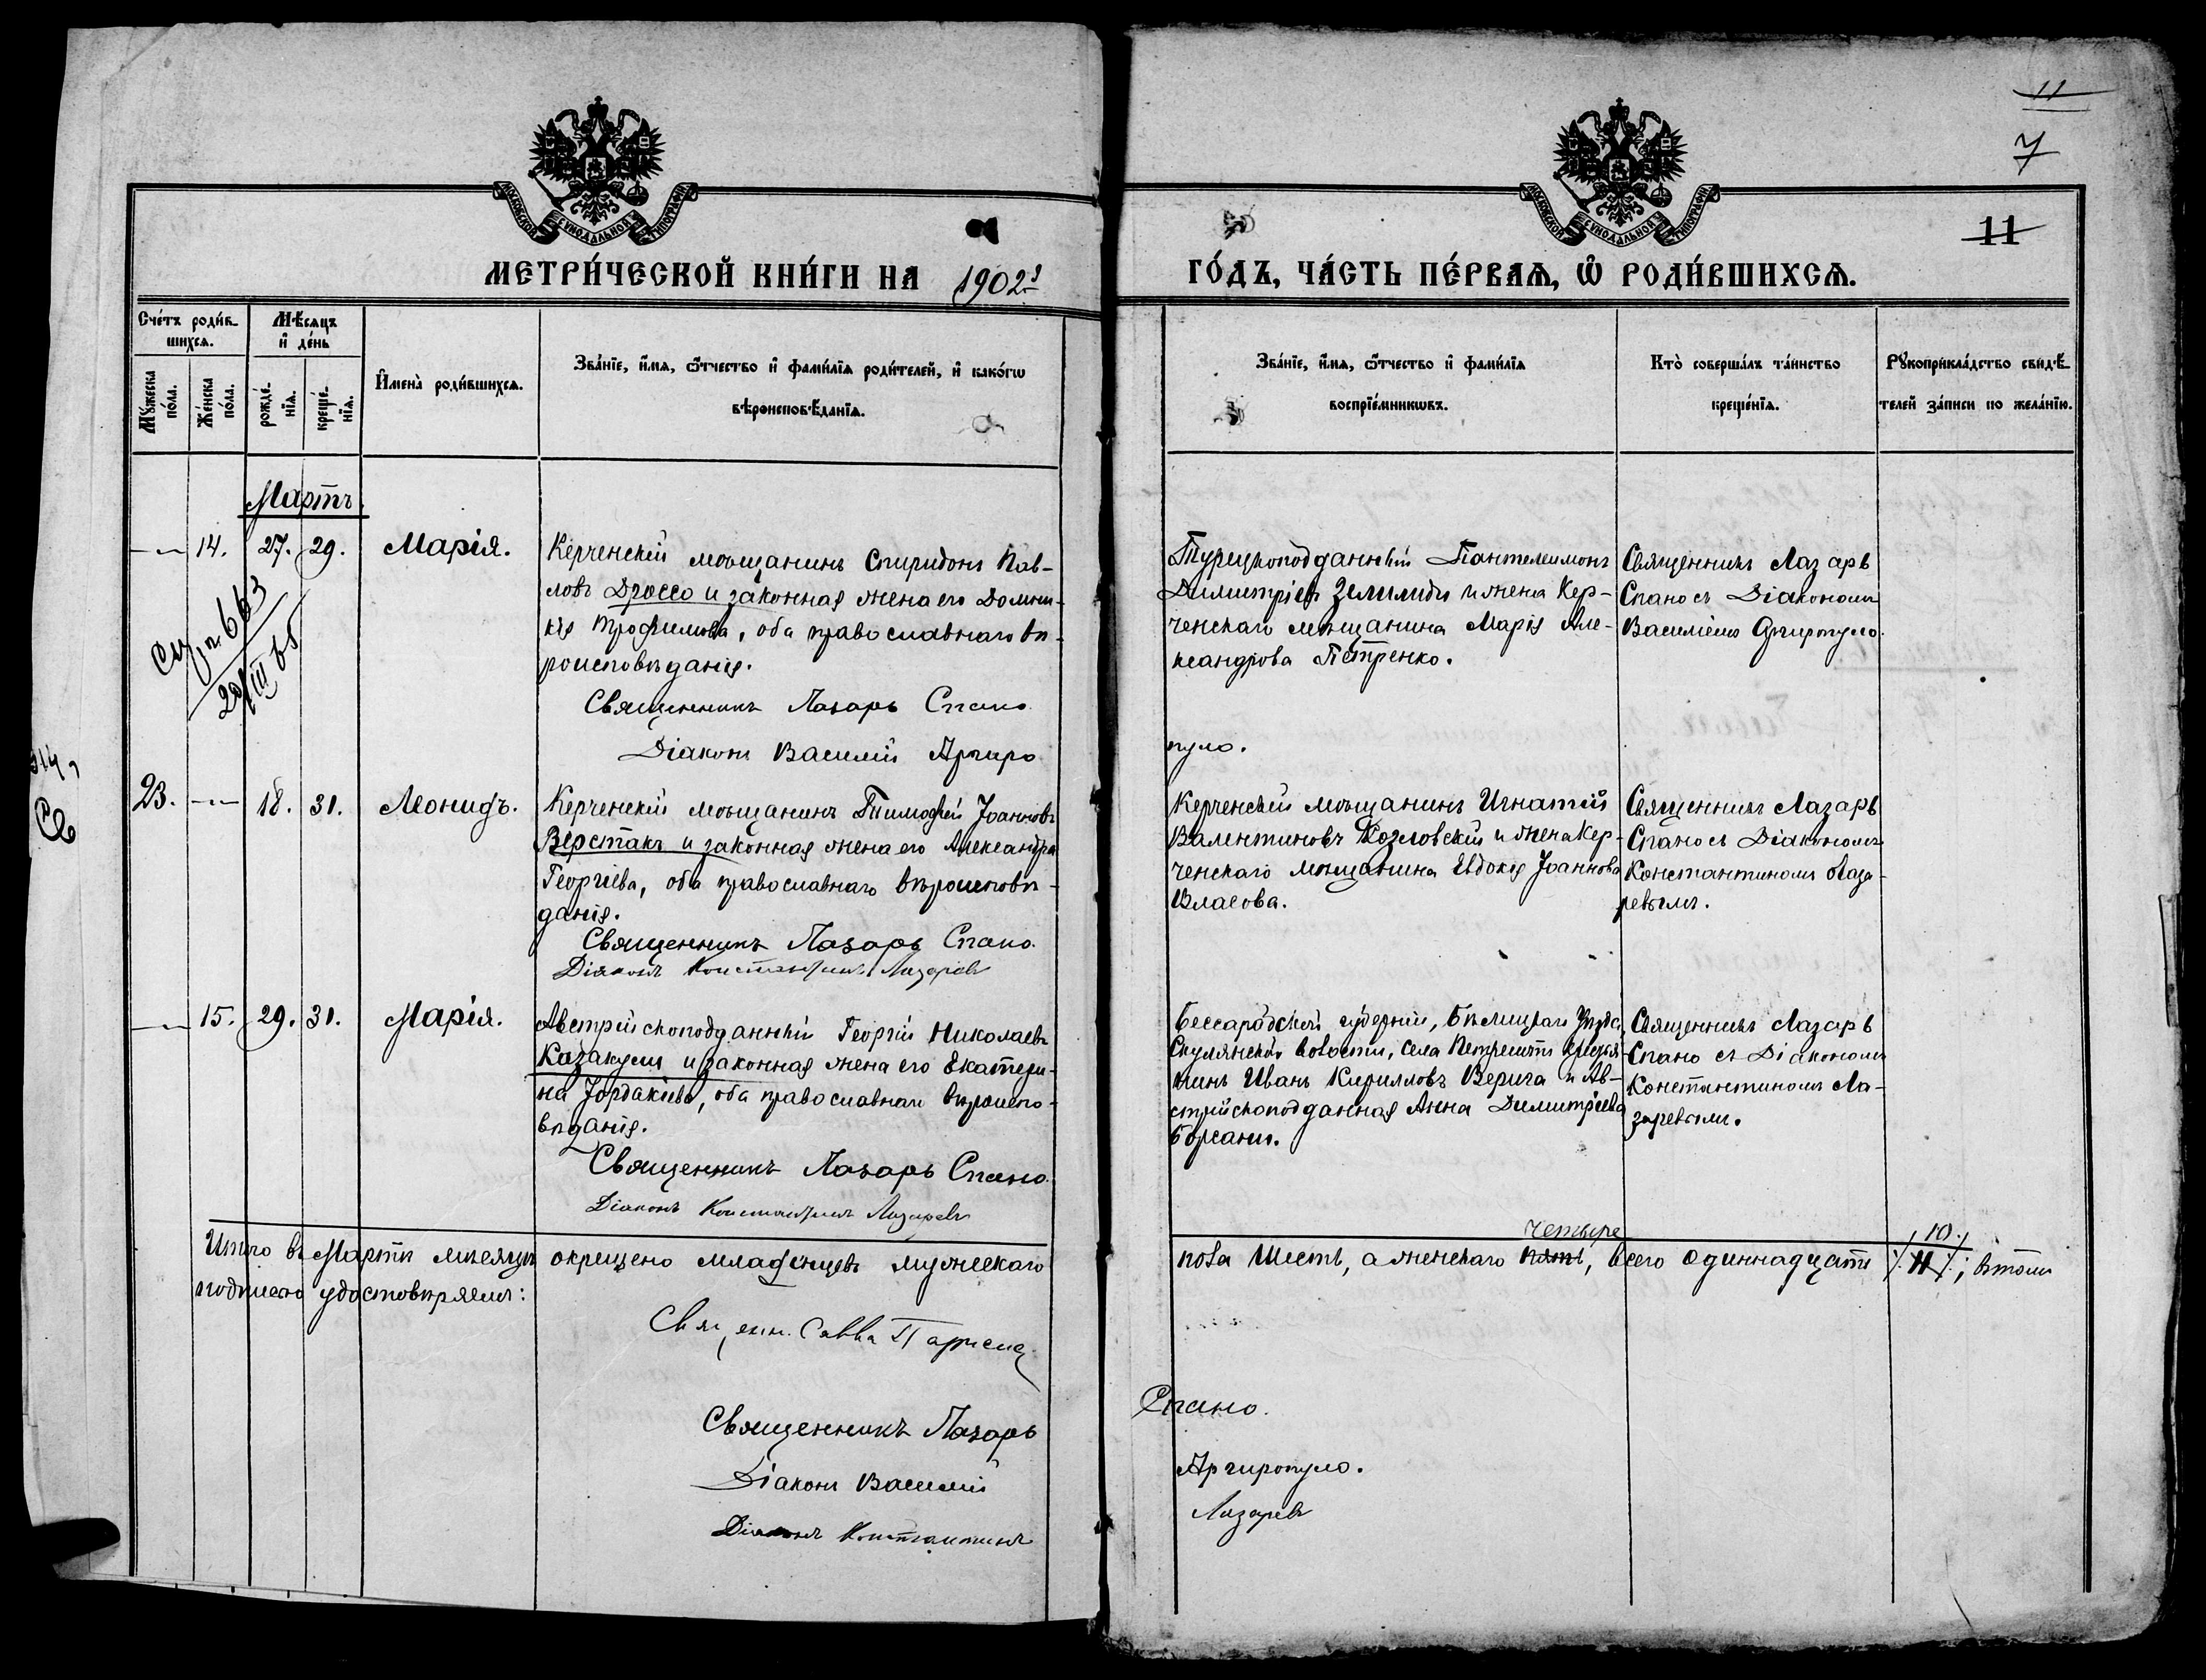 11
7
МОСКОВСКОЙ СУНОДАЛЬНОЙ ТИПОГРАФІИ
МОСКОВСКОЙ СУНОДАЛЬНОЙ ТИПОГРАФІИ
11
МЕТРИ́ЧЕСКОЙ КНИ́ГИ НА 1902 й
ГО́ДЪ, ЧА́СТЬ ПЕ́РВАѦ, Ѡ҆ РОДИ́ВШИХСѦ.
Сче́тъ роди́в-
шихсѧ.
Мꙋ́жеска
по́ла.
Же́нска
по́ла.
Мѣ́сѧцъ
и҆ де́нь
рожде́-
нїѧ.
креще́-
нїѧ.
И҆мена̀ роди́вшихсѧ.
Зва́нїе, и҆́мѧ, ѻ҆́тчество и҆ фами́лїѧ роди́телей, и҆ како́гѡ
вѣроисповѣ́данїѧ.
Зва́нїе, и҆́мѧ, ѻ҆́тчество и҆ фами́лїѧ
воспрїе́мникѡвъ.
Кто̀ соверша́лъ та́инство
креще́нїѧ.
Рꙋкоприкла́дство свидѣ́-
телей за́писи по жела́нїю.
Мартъ
14. 27. 29. Марія.
Керченскій мѣщанинъ Спиридонъ Пав-
ловъ Дроссо и законная жена его Домни-
кія Трофимова, оба православнаго вѣ-
роисповѣданія.
Священникъ Лазарь Спано
Діаконъ Василій Аргиро
663
20/III 65
Турецкоподданный Пантелеимонъ
Димитріевъ Зелилиди и жена Кер-
ченскаго мѣщанина Марія Але-
ксандрова Петренко.
пуло.
Священникъ Лазарь
Спано съ Діакономъ
Василіемъ Аргиропуло.
23. 18. 31. Леонидъ.
Керченскій мѣщанинъ Тимофей Іоанновъ
Верстакъ и законная жена его Александра
Георгіева, оба православнаго вѣроисповѣ-
данія.
Священникъ Лазарь Спано.
Діаконъ Константинъ Лазаревъ
Керченскій мѣщанинъ Игнатій
Валентиновъ Козловскій и жена Кер-
ченскаго мѣщанина Евдокія Іоаннова
Власова.
Священникъ Лазарь
Спано съ Діакономъ
Константиномъ Лаза-
ревымъ.
15. 29. 31. Марія.
Австрійскоподданный Георгій Николаевъ
Казакули и законная жена его Екатери-
на Іордакіева, оба православнаго вѣроиспо-
вѣданія.
Священникъ Лазарь Спано.
Діаконъ Константинъ Лазаревъ
Бессарабской губерніи, Бѣлицкаго Уѣзда,
Скулянской волости, села Петрешты крестья-
нинъ Иванъ Кирилловъ Верига и Ав-
стрійскоподданная Анна Димитріева
Борсани.
Священникъ Лазарь
Спано съ Діакономъ
Константиномъ Ла-
заревымъ.
Итого въ Мартѣ мѣсяцѣ окрещено младенцевъ мужескаго
пола шесть, а женскаго пять, всего одиннадцать 11; въ томъ
четыре
10.
подписью удостовѣряемъ:
Священ. Савва
Священникъ Лазарь
Спано.
Діаконъ Василій
Аргиропуло.
Діаконъ Константинъ
Лазаревъ